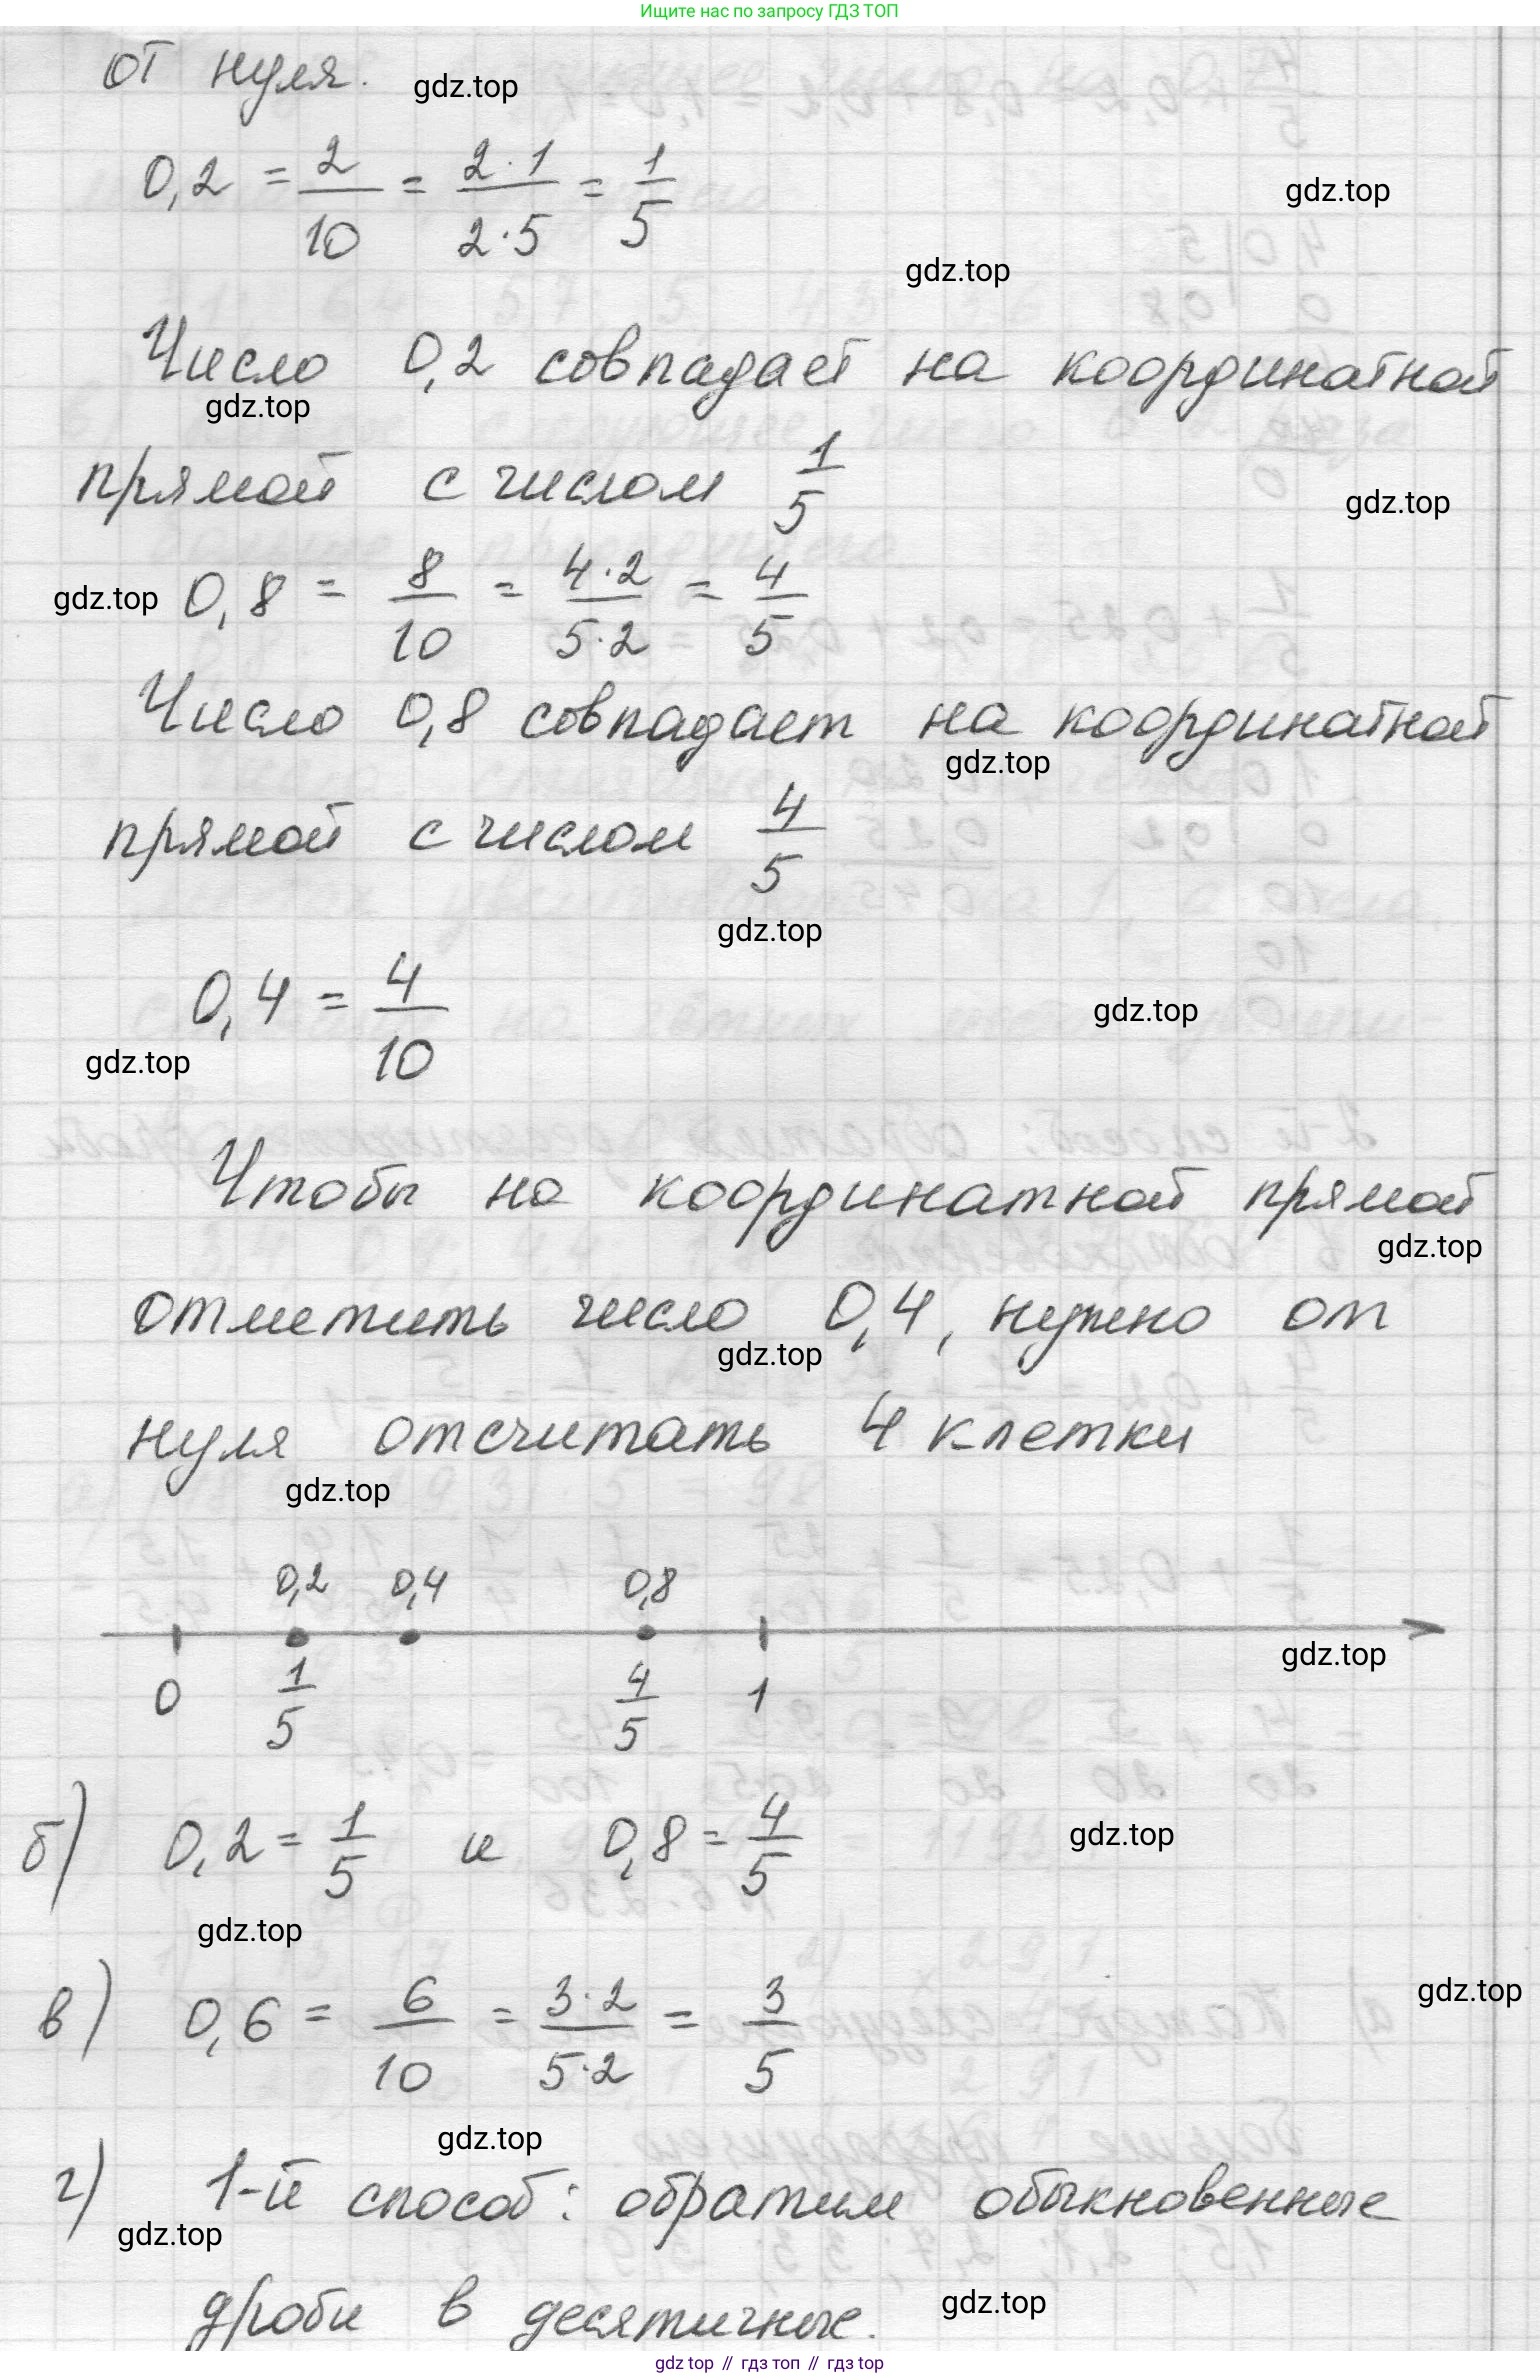 Ищите нас по запросу ГДЗ ТОП
от нуля.
gdz.top
0,2 = 2/10 = 2·1/2·5 = 1/5
gdz.top
gdz.top
Число 0,2 совпадает на координатной
gdz.top
прямой с числом 1/5
gdz.top
gdz.top
0,8 = 8/10 = 4·2/5·2 = 4/5
Число 0,8 совпадает на координатной
gdz.top
прямой с числом 4/5
gdz.top
0,4 = 4/10
gdz.top
gdz.top
Чтобы на координатной прямой
gdz.top
отметить число 0,4, нужно от
gdz.top
нуля отсчитать 4 клетки
gdz.top
0,2 0,4 0,8
gdz.top
0 1/5 4/5 1
б) 0,2 = 1/5 и 0,8 = 4/5
gdz.top
gdz.top
в) 0,6 = 6/10 = 3·2/5·2 = 3/5
gdz.top
gdz.top
г) 1-й способ: обратим обыкновенные
gdz.top
дроби в десятичные.
gdz.top
gdz top // гдз топ // gdz top